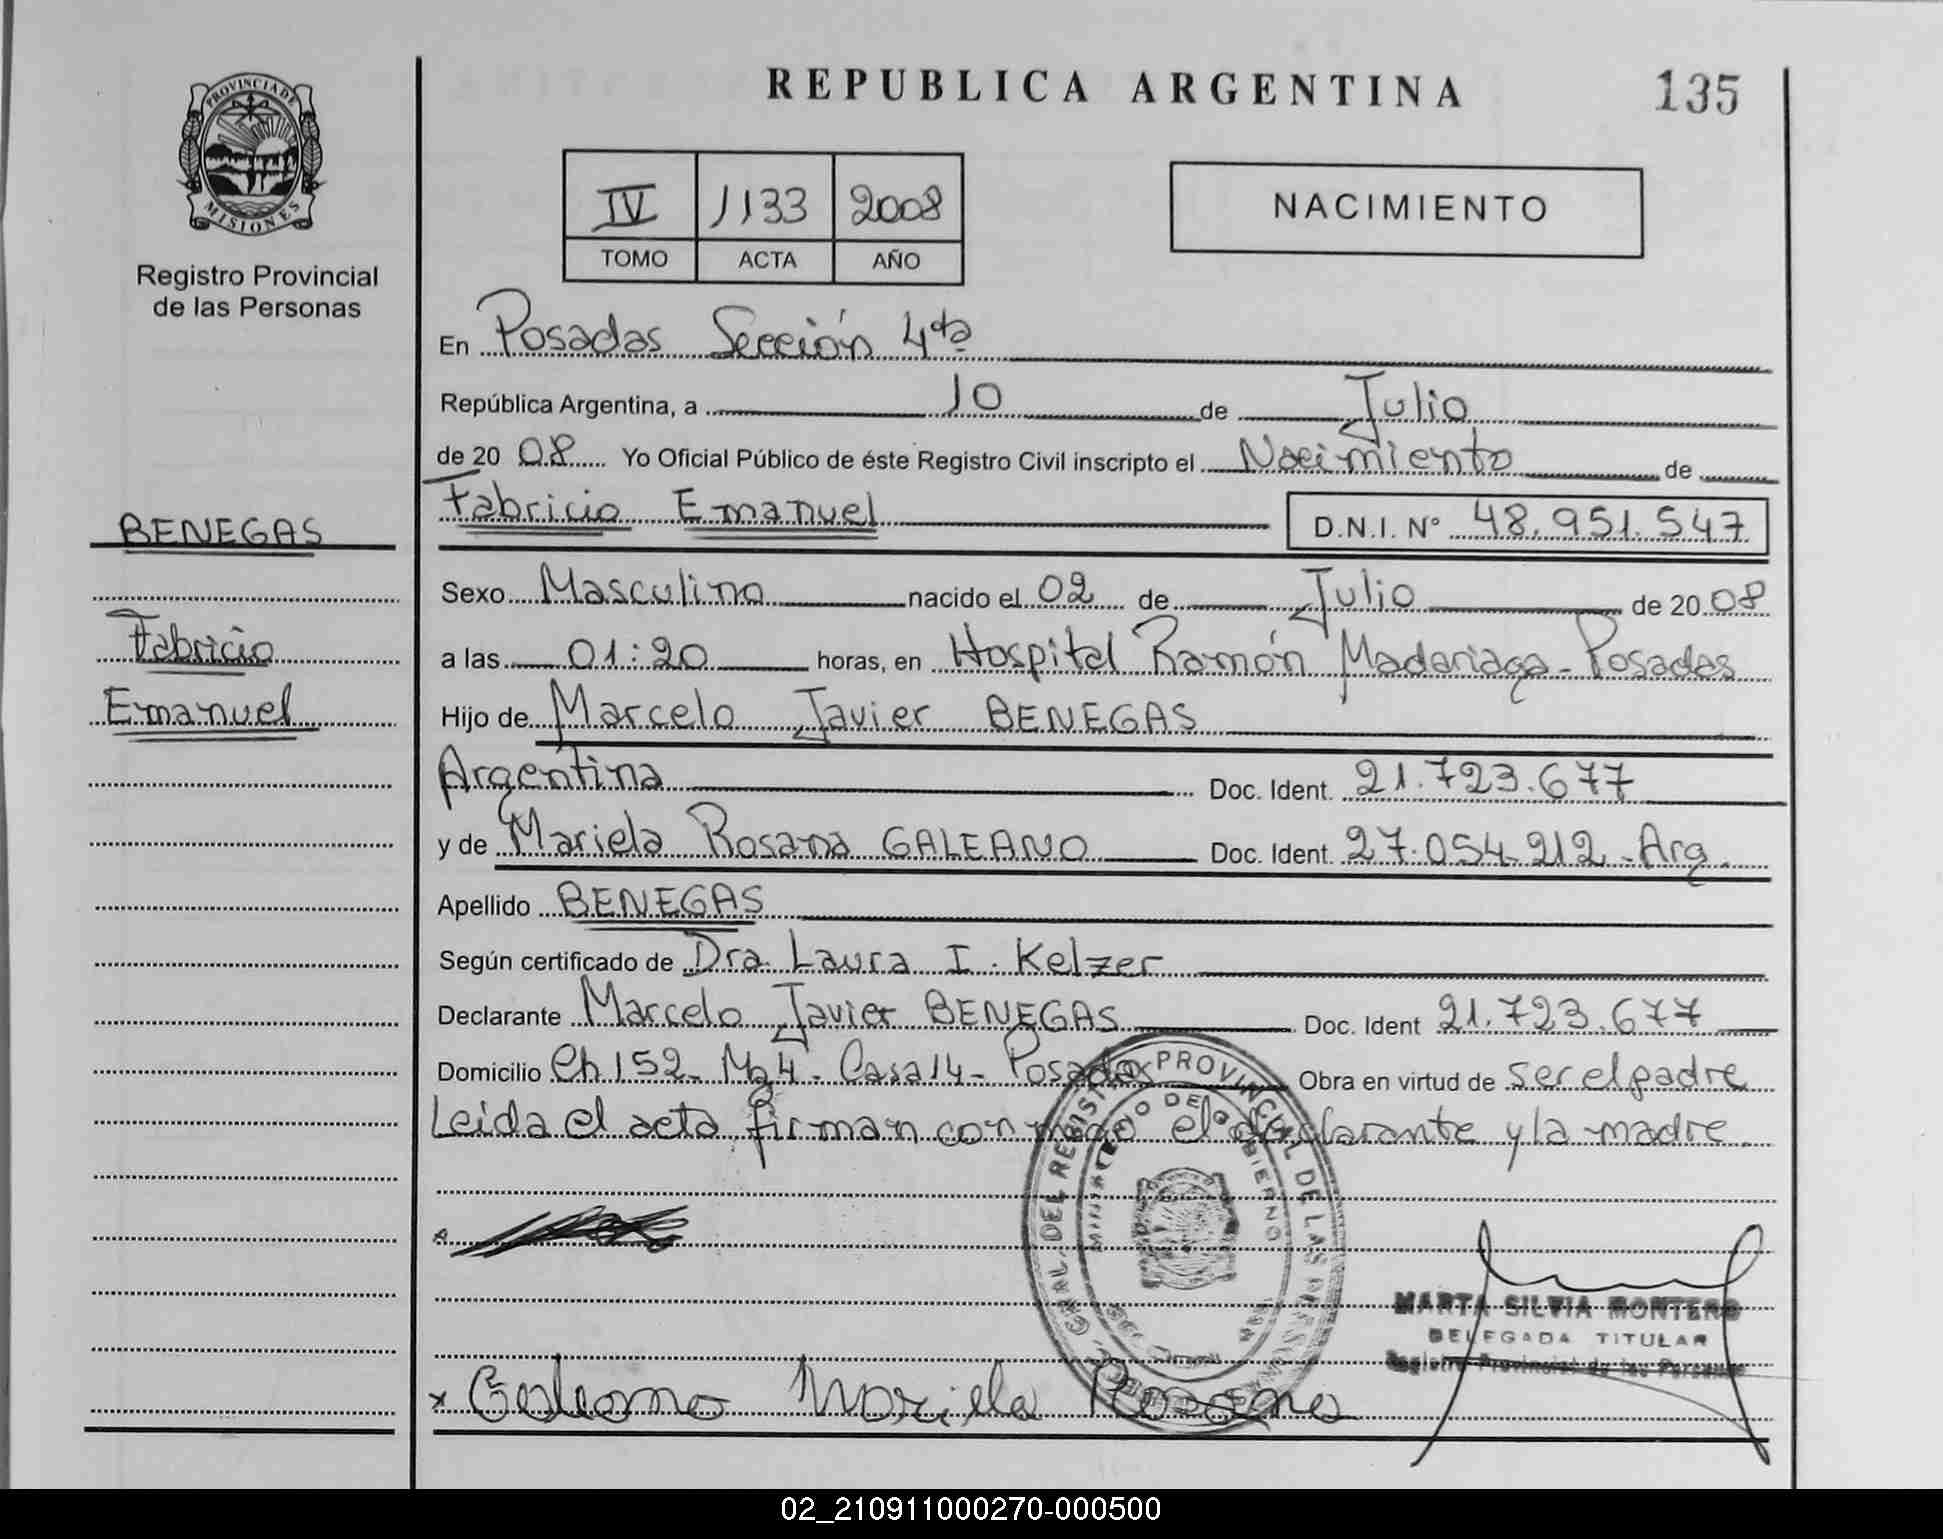 REPUBLICA ARGENTINA
135
PROVINCIA DE
MISIONES
Registro Provincial
de las Personas
IV 1133 2008
TOMO ACTA AÑO
NACIMIENTO
En Posadas Sección 4ta
República Argentina, a 10 de Julio
de 20 08 Yo Oficial Público de éste Registro Civil inscripto el Nacimiento de
Fabricio Emanuel D.N.I. N° 48.951.547
BENEGAS
Fabricio
Emanuel
Sexo Masculino nacido el 02 de Julio de 20 08
a las 01:20 horas, en Hospital Ramón Madariaga - Posadas
Hijo de Marcelo Javier BENEGAS
Argentina Doc. Ident. 21.723.677
y de Mariela Rosana GALEANO Doc. Ident. 27.054.212 - Arg.
Apellido BENEGAS
Según certificado de Dra. Laura I. Kelzer
Declarante Marcelo Javier BENEGAS Doc. Ident 21.723.677
Domicilio Ch 152 - Mz 4 - Casa 14 - Posadas Obra en virtud de ser el padre
Leida el acta firman conmigo el declarante y la madre.
GRAL. DEL REGISTRO PROVINCIAL DE LAS PERSONAS
MINISTERIO DE GOBIERNO
MARTA SILVIA MONTERO
DELEGADA TITULAR
Registro Provincial de las Personas
x Galeano Mariela Rosana
02_210911000270-000500